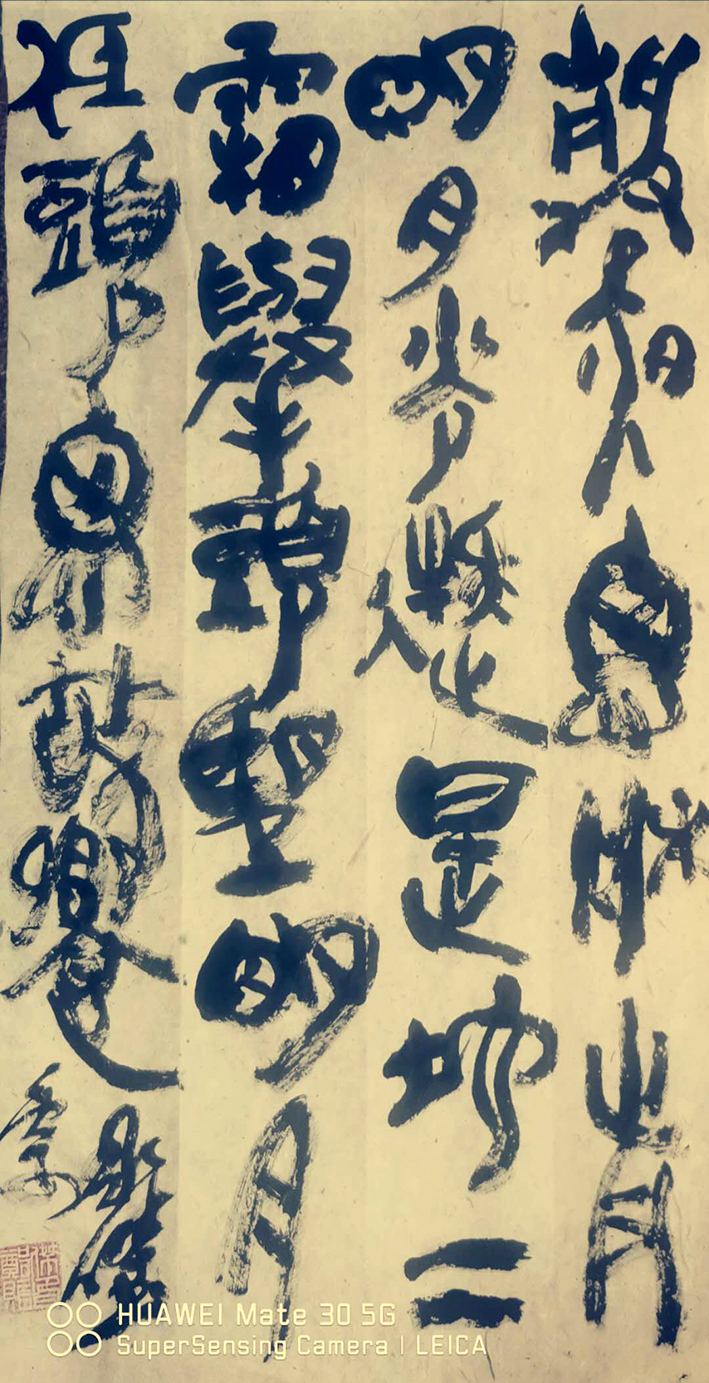 靜夜思牀前
明月光疑是地上
霜舉頭望明月
低頭思故鄉
HUAWEI Mate 30 5G
SuperSensing Camera | LEICA